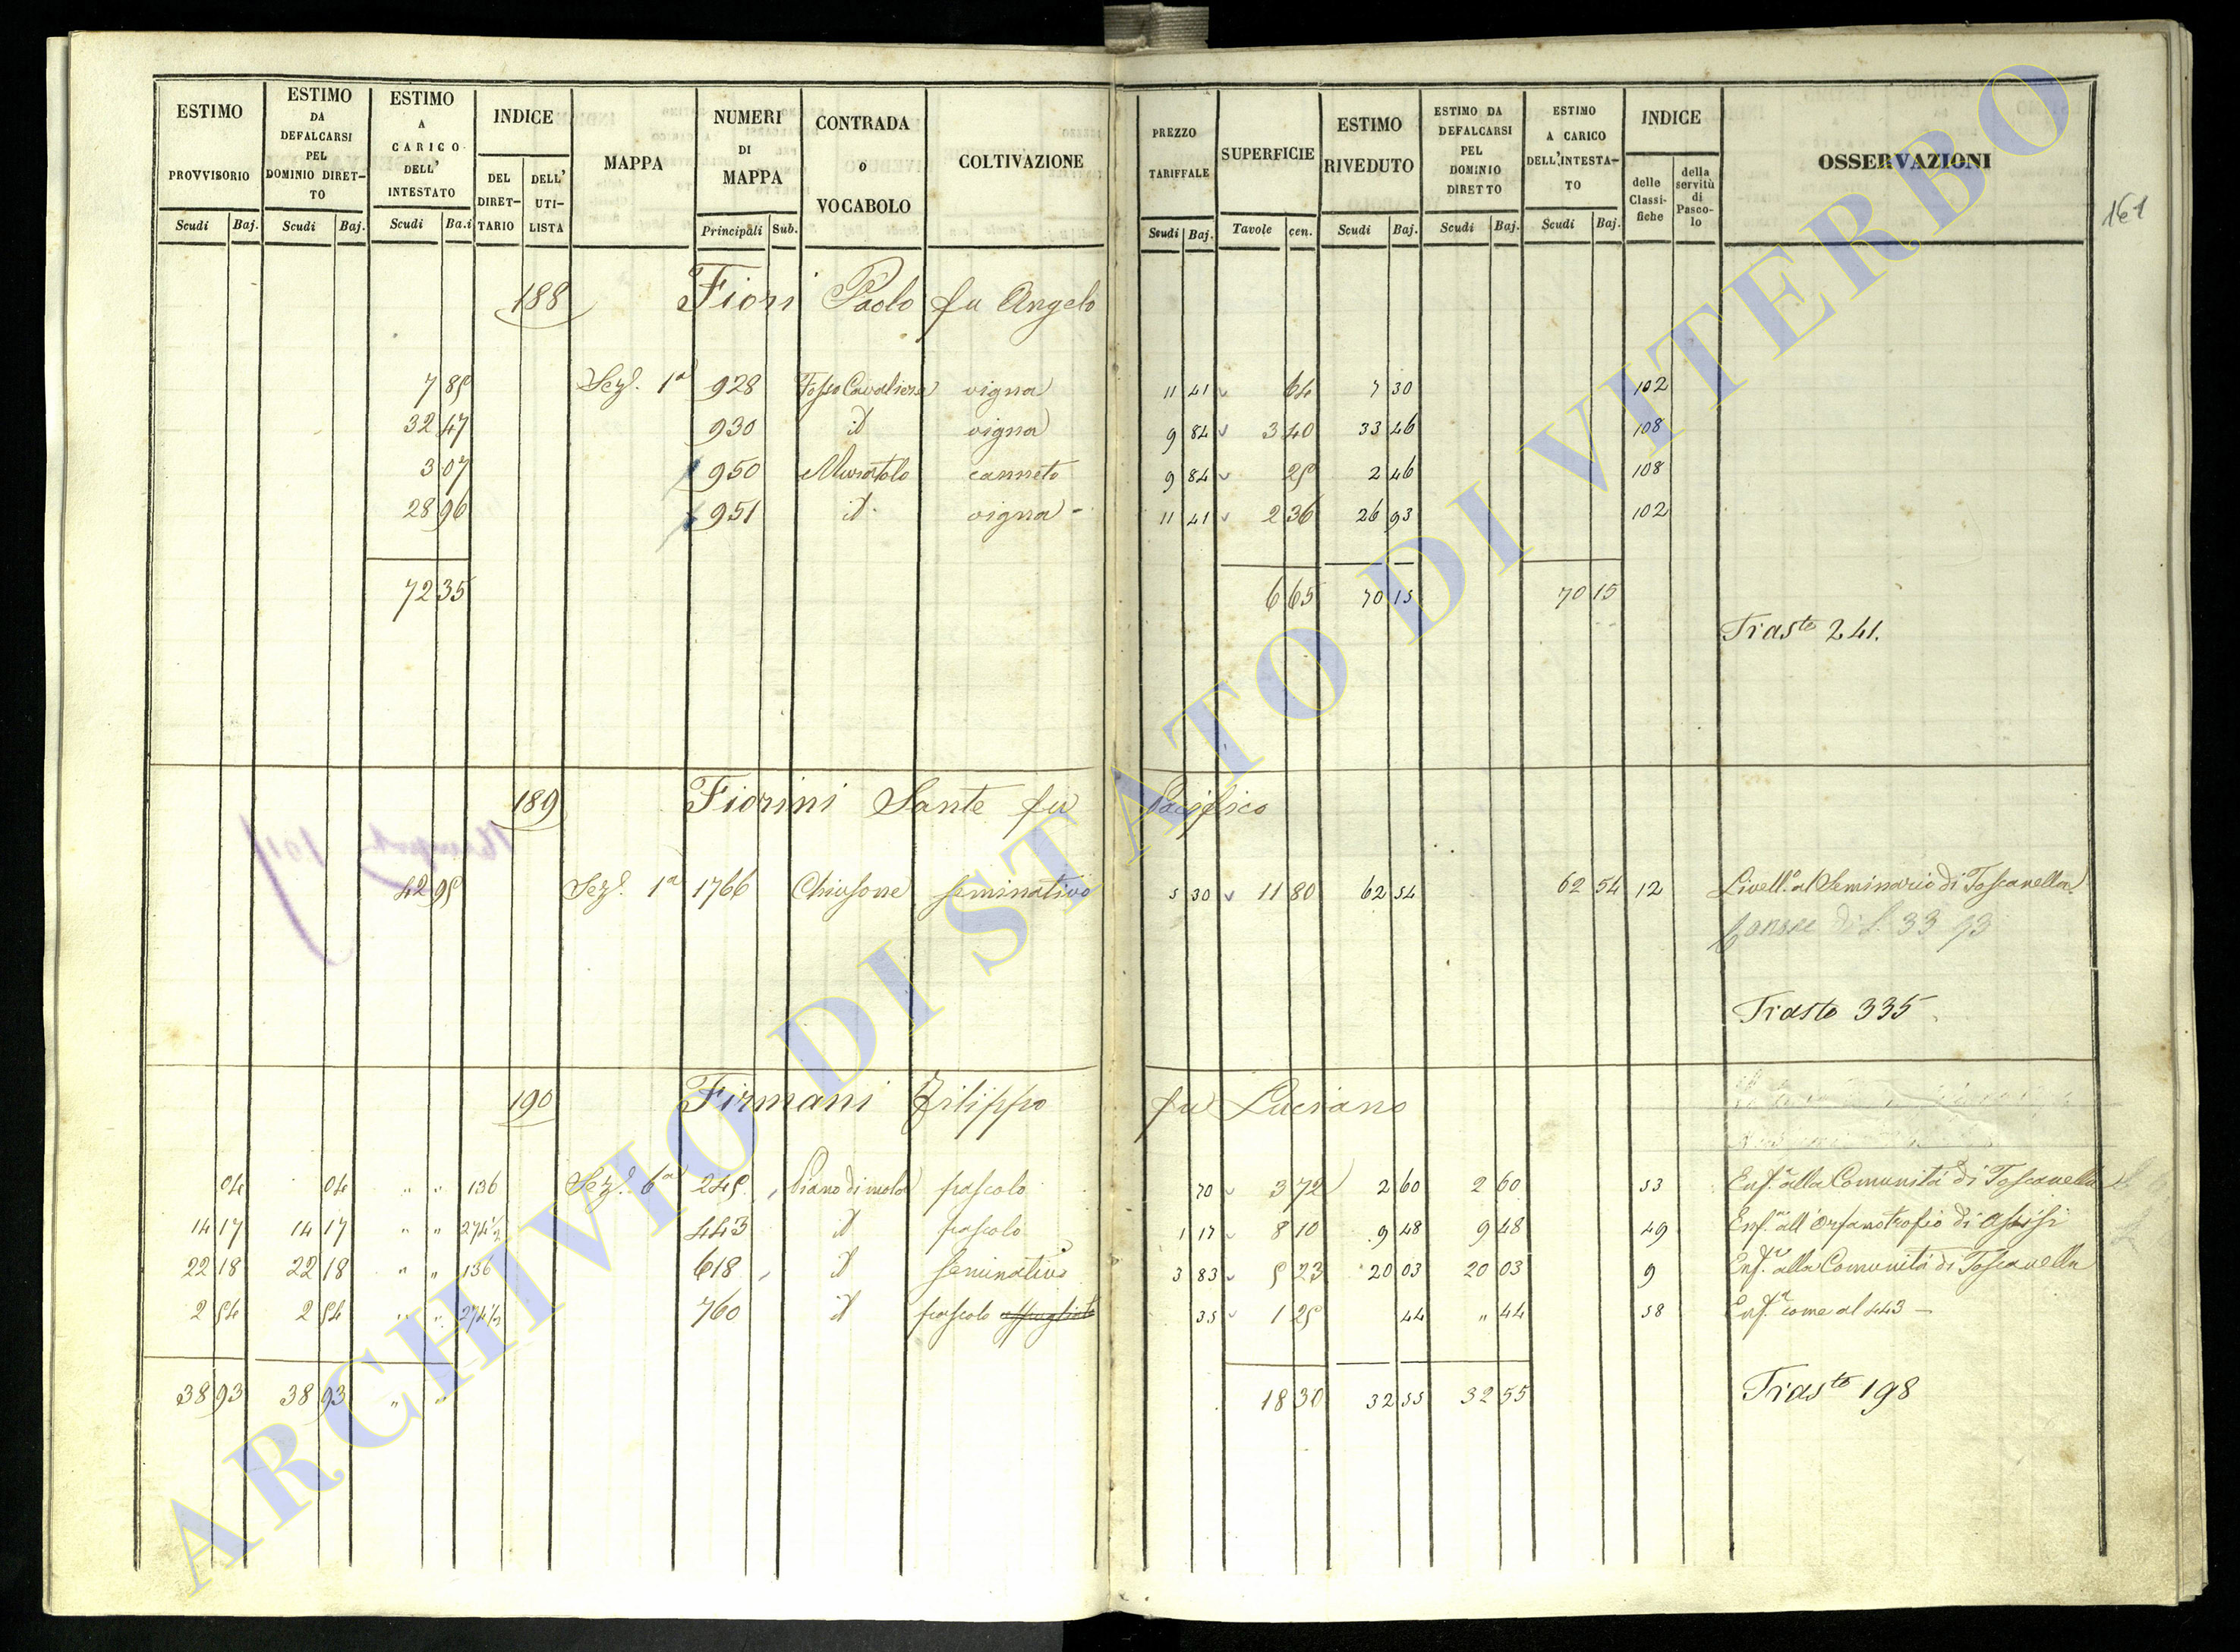 ESTIMO PROVVISORIO | ESTIMO DA DEFALCARSI PEL DOMINIO DIRETTO | ESTIMO A CARICO DELL' INTESTATO | INDICE | MAPPA | NUMERI DI MAPPA | CONTRADA o VOCABOLO | COLTIVAZIONE | PREZZO TARIFFALE | SUPERFICIE | ESTIMO RIVEDUTO | ESTIMO DA DEFALCARSI PEL DOMINIO DIRETTO | ESTIMO A CARICO DELL'INTESTATO | INDICE | OSSERVAZIONI
DEL DIRETTARIO | DELL' UTILISTA | delle Classifiche | della servitù di Pascolo
Scudi | Baj. | Scudi | Baj. | Scudi | Ba.i | Principali | Sub. | Scudi | Baj. | Tavole | cen. | Scudi | Baj. | Scudi | Baj. | Scudi | Baj.
161
188 Fiori Paolo fu Angelo
7 85 | Sez. 1a | 928 | Fosso Cavaliere | vigna | 11 41 | 64 | 7 30 | 102
32 47 | 930 | id | vigna | 9 84 | 3 40 | 33 46 | 108
3 07 | 950 | Muratolo | canneto | 9 84 | 25 | 2 46 | 108
28 96 | 951 | id | vigna | 11 41 | 2 36 | 26 93 | 102
72 35 | 6 65 | 70 15 | 70 15
Trasto 241.
189 Fiorini Sante fu Pacifico
42 95 | Sez. 1a | 1766 | Chiusone | seminativo | 5 30 | 11 80 | 62 54 | 62 54 | 12 | Livello al Seminario di Toscanella
33 93
Trasto 335
190 Firmani Filippo fu Luciano
04 | 04 | " " | 136 | Sez. 6a | 245 | Piano di mola | pascolo | 70 | 3 72 | 2 60 | 2 60 | 53 | Enf.a alla Comunità di Toscanella
14 17 | 14 17 | " " | 274 1/2 | 443 | id | pascolo | 1 17 | 8 10 | 9 48 | 9 48 | 49 | Enf.a all'Orfanotrofio di Assisi
22 18 | 22 18 | " " | 136 | 618 | id | seminativo | 3 83 | 5 23 | 20 03 | 20 03 | 9 | Enf.a alla Comunità di Toscanella
2 54 | 2 54 | " " | 274 1/2 | 760 | id | pascolo | 35 | 1 25 | 44 | " 44 | 58 | Enf.a come al 443 –
38 93 | 38 93 | " " | 18 30 | 32 55 | 32 55
Trasto 198
ARCHIVIO DI STATO DI VITERBO